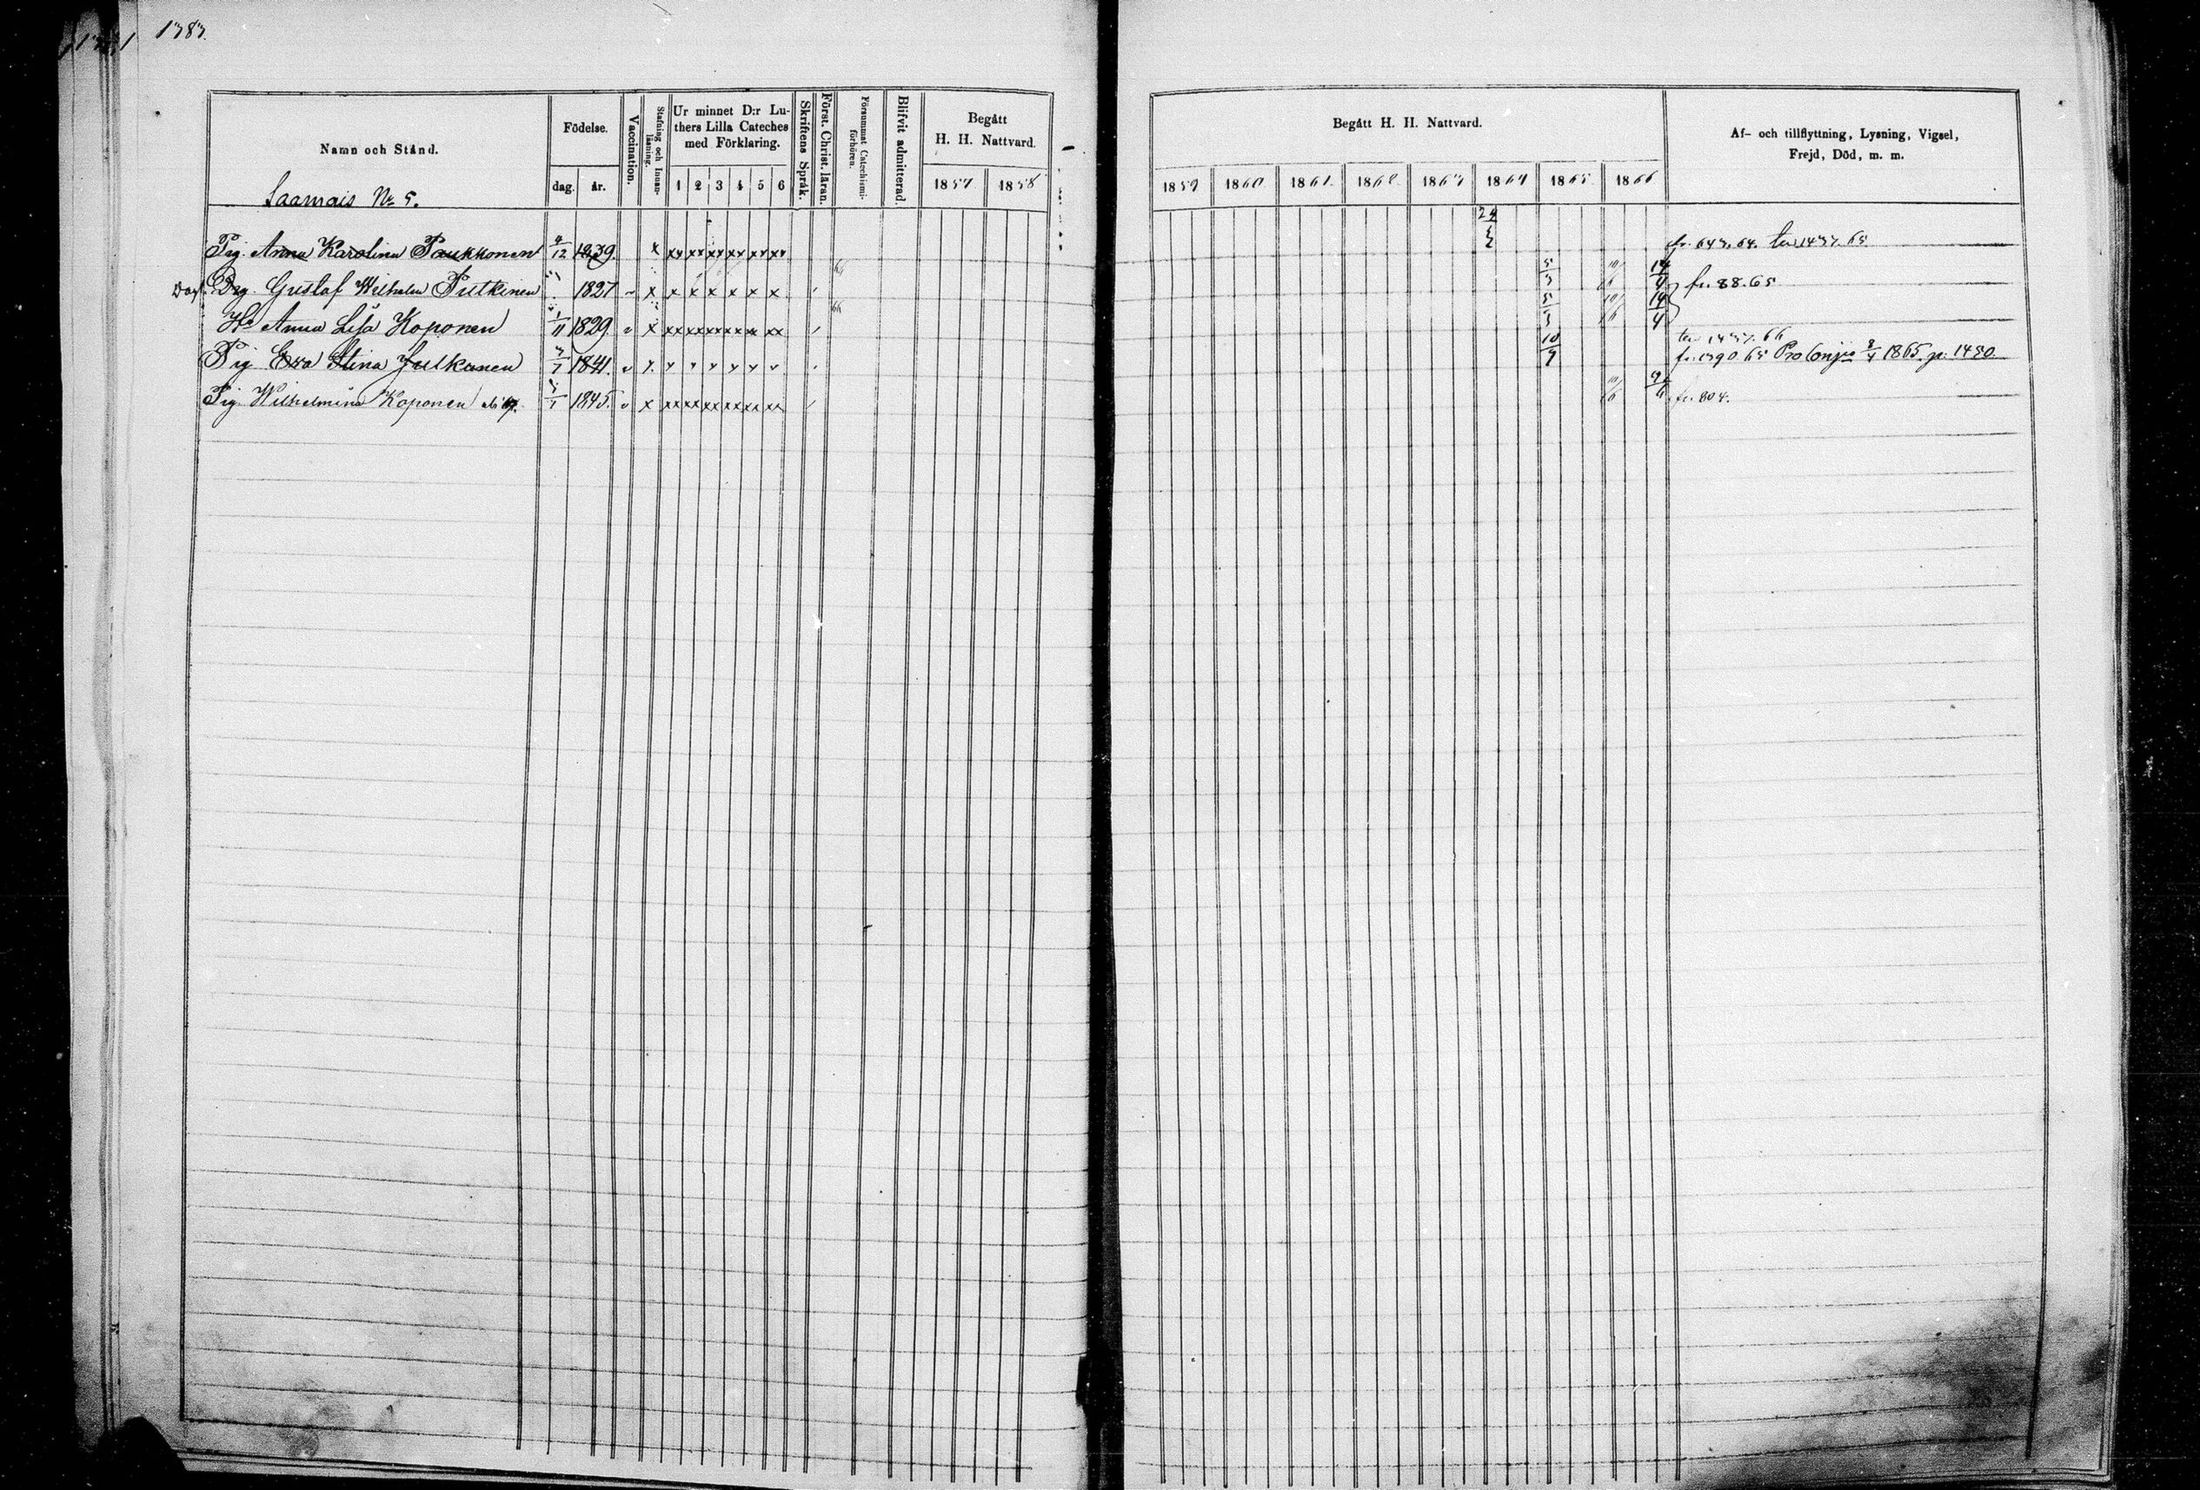 1383.
Namn och Stånd.
Födelse.
dag. år.
Vaccination.
Stafning och Innanläsning.
Ur minnet D:r Lu-
thers Lilla Cateches
med Förklaring.
1 2 3 4 5 6
Skriftens Språk.
Först. Christ. läran.
Försummat Catechismi-
förhören.
Blifvit admitterad.
Begått
H. H. Nattvard.
1857 1858
Begått H. H. Nattvard.
1859 1860 1861 1862 1863 1864 1865 1866
Af- och tillflyttning, Lysning, Vigsel,
Frejd, Död, m. m.
Saamais No 5.
Pig. Anna Karolina Paukkonen 4/12 1839. x xx xx xx xx xx xx 24/2 fr. 643. 64. 1437. 65
Drg. Gustaf Wilhelm Putkinen 1827 x x x x x x x 5/3 10/6 14/4 fr. 88. 65
Hu Anna Lisa Koponen 1/11 1829 x xx xx xx xx xx xx 5/3 10/6 14/4
1437. 66
Pig Eva Stina Julkunen 1841. 10/9 fr. 1390 65 1865. p. 1480
Pig. Wilhelmina Koponen 1845. x xx xx xx xx xx xx 10/6 fr. 804.